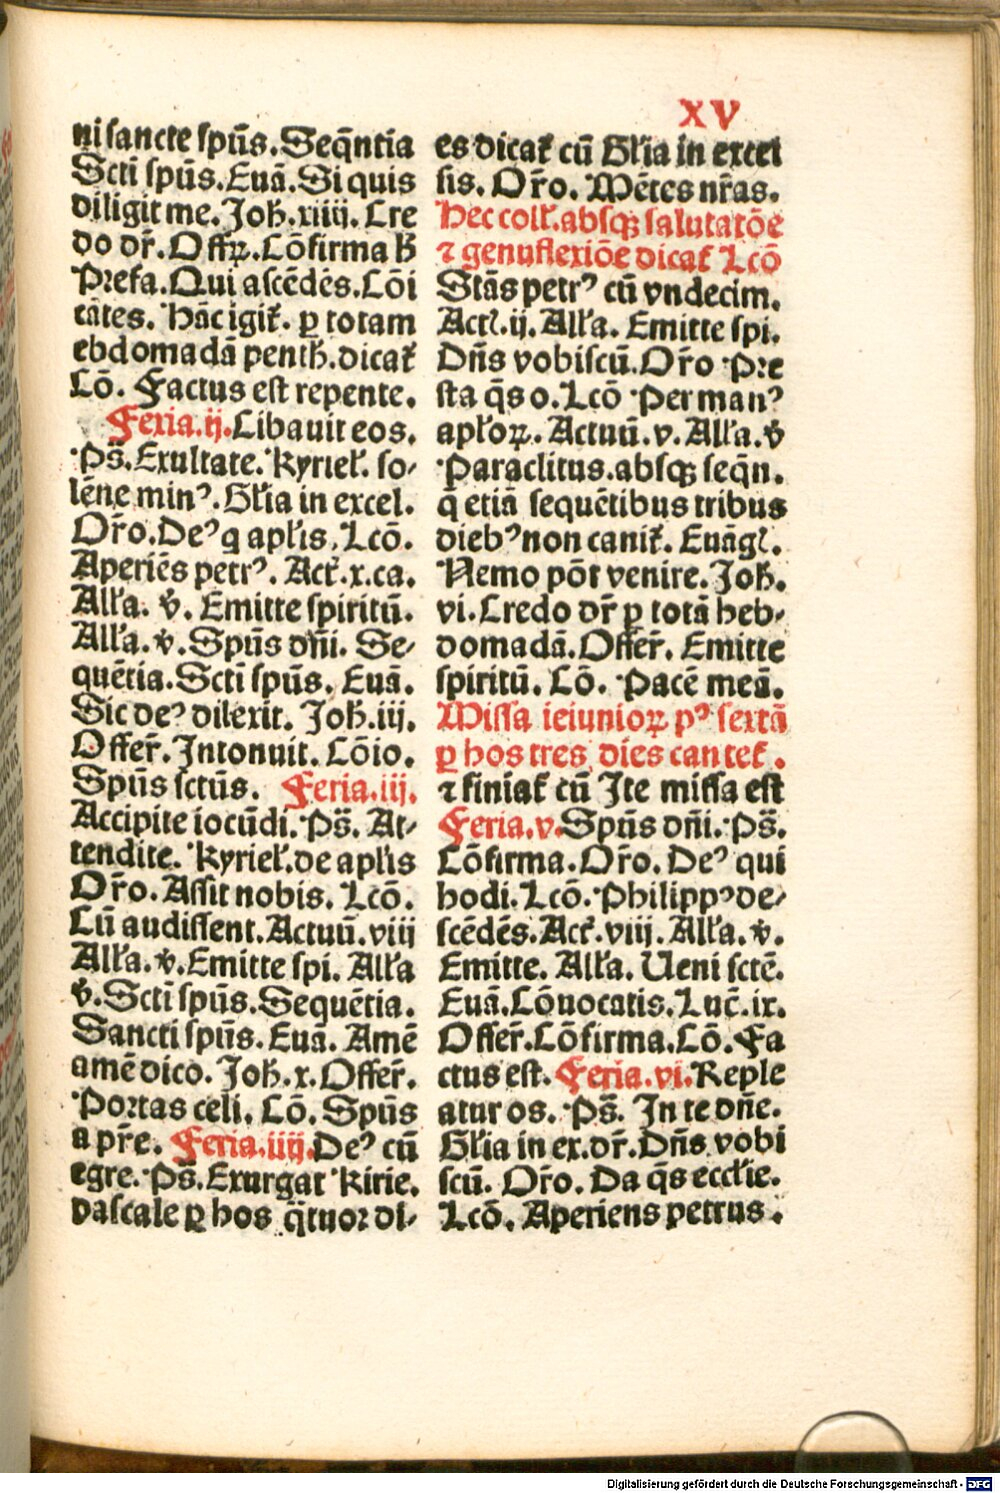 XV
ni sancte spūs. Seq̄ntia
Scti spūs. Euā. Si quis
diligit me. Joh̄. xiiii. Cre
do dr̄. Offꝝ. Cōfirma h̄
Prefa. Qui ascēdēs. Cōi
cātes. Hāc igit̄. ꝑ totam
ebdomadā penth̄. dicat̄
Cō. Factus est repente.
Feria. ij. Cibauit eos.
Ps̄. Exultate. Kyriel̄. so⸗
lēne minꝰ. Gl̄ia in excel.
Or̄o. Deꝰ q apl̄is. Lcō.
Aperiēs petrꝰ. Act̄. x. ca.
All̄a. v̄. Emitte spiritū.
All̄a. v̄. Spūs dn̄i. Se⸗
quētia. Scti spūs. Euā.
Sic deꝰ dilexit. Joh̄. iij.
Offer̄. Intonuit. Cōio.
Spūs sctūs. Feria. iij.
Accipite iocūdi. Ps̄. At⸗
tendite. Kyriel̄. de apl̄is
Or̄o. Assit nobis. Lcō.
Cū audissent. Actuū. viij
All̄a. v̄. Emitte spi. All̄a
v̄. Scti spūs. Sequētia.
Sancti spūs. Euā. Amē
amē dico. Joh̄. x. Offer̄.
Portas celi. Cō. Spūs
a pr̄e. Feria. iiij. Deꝰ cū
egre. Ps̄. Exurgat Kirie.
Pascale ꝑ hos q̄tuor di⸗
es dicat̄ cū Gl̄ia in excel
sis. Or̄o. Mētes nr̄as.
Hec coll̄. absqꝫ salutatōe
⁊ genuflexiōe dicat̄ Lcō
Stās petrꝰ cū vndecim.
Actl. ij. All̄a. Emitte spi.
Dn̄s vobiscū. Or̄o Pre
sta q̄s o. Lcō Per manꝰ
apl̄oꝝ. Actuū. v. All̄a. v̄
Paraclitus. absqꝫ seq̄n.
q̄ etiā sequētibus tribus
diebꝰ non canit̄. Euāgl.
Nemo pōt venire. Joh̄.
vi. Credo dr̄ ꝑ totā heb⸗
domadā. Offer̄. Emitte
spiritū. Cō. Pacē meā.
Missa ieiunioꝝ pꝰ sextā
ꝑ hos tres dies cantet̄.
⁊ finiat̄ cū Ite missa est
Feria. v. Spūs dn̄i. Ps̄.
Cōfirma. Or̄o. Deꝰ qui
hodi. Lcō. Philippꝰ de⸗
scēdēs. Act̄. viij. All̄a. v̄.
Emitte. All̄a. Ueni sctē.
Euā. Cōuocatis. Luc̄. ix.
Offer̄. Cōfirma. Cō. Fa
ctus est. Feria. vi. Reple
atur os. Ps̄. In te dn̄e.
Gl̄ia in ex. dr̄. Dn̄s vobi
scū. Or̄o. Da q̄s eccl̄ie.
Lcō. Aperiens petrus.
Digitalisierung gefördert durch die Deutsche Forschungsgemeinschaft - DFG